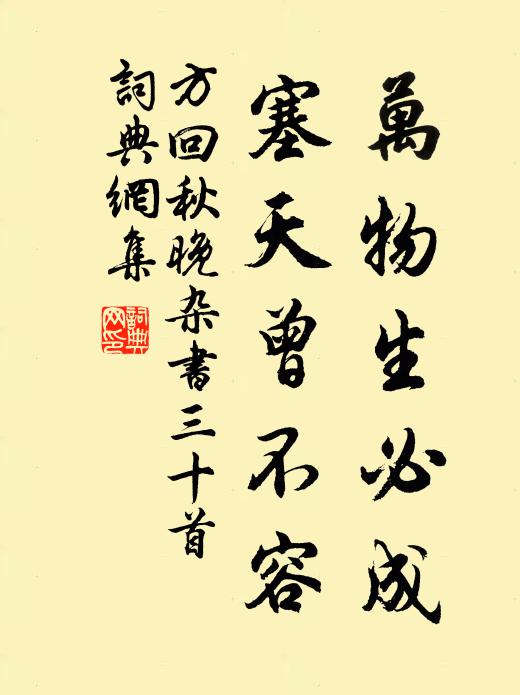 萬物生必成
塞天曾不容
方回秋晚杂書三十首
詞典網集
詞典网印